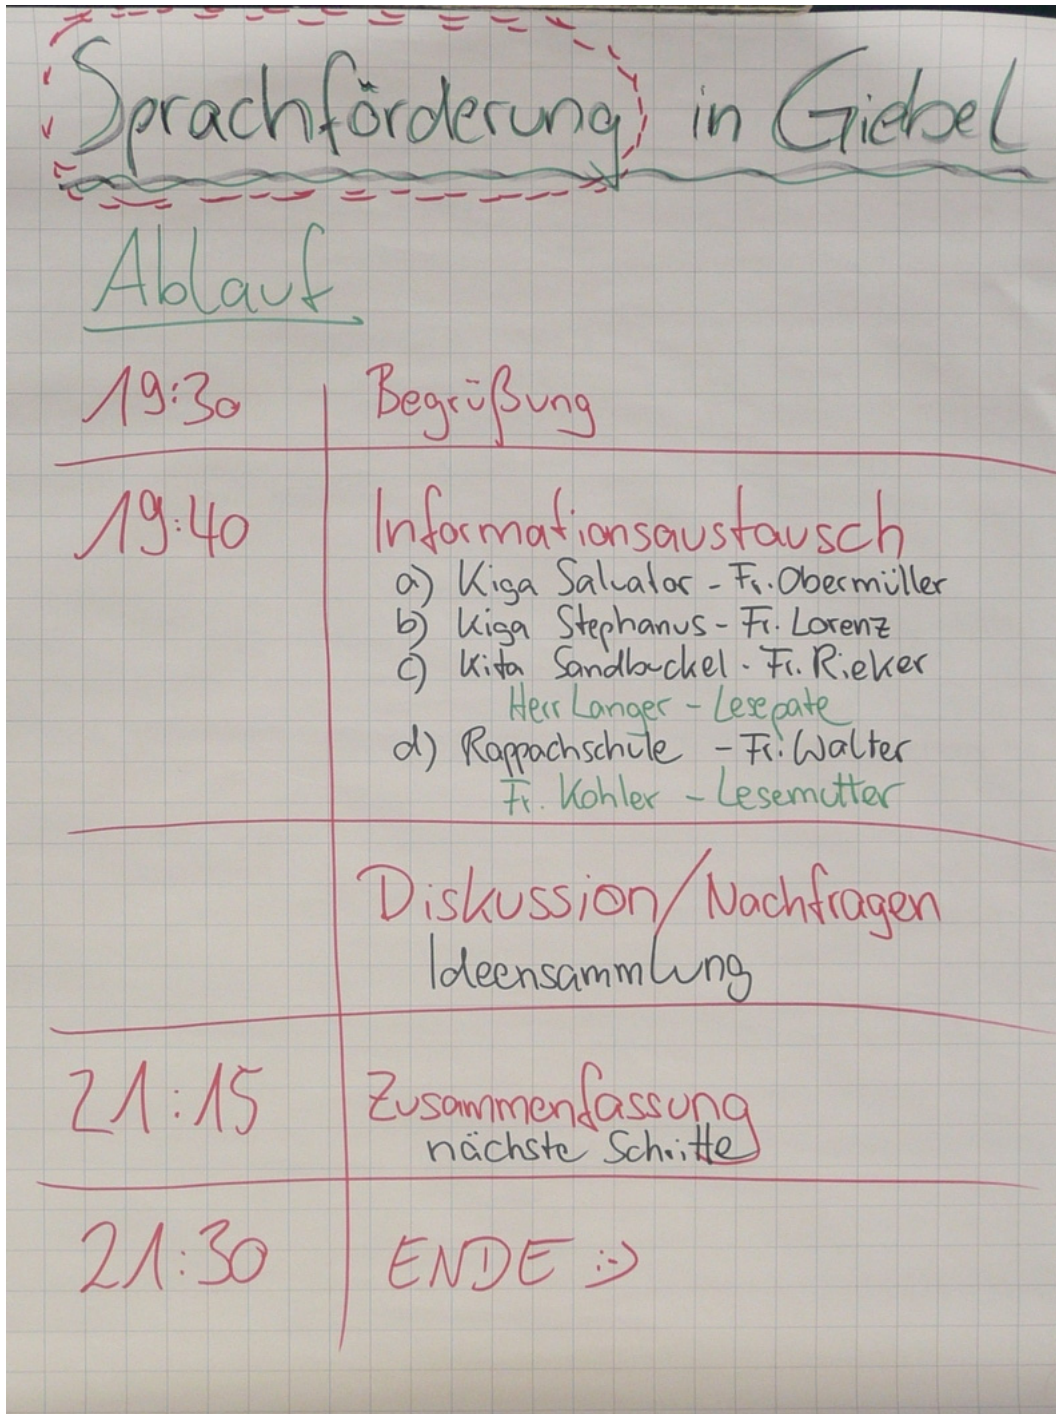 Sprachförderung in Giebel
Ablauf
19:30 Begrüßung
19:40 Informationsaustausch
a) Kiga Salvator - Fr. Obermüller
b) Kiga Stephanus - Fr. Lorenz
c) Kita Sandbuckel - Fr. Rieker
Herr Langer - Lesepate
d) Rappachschule - Fr. Walter
Fr. Kohler - Lesemutter
Diskussion/Nachfragen
Ideensammlung
21:15 Zusammenfassung
nächste Schritte
21:30 ENDE :-)